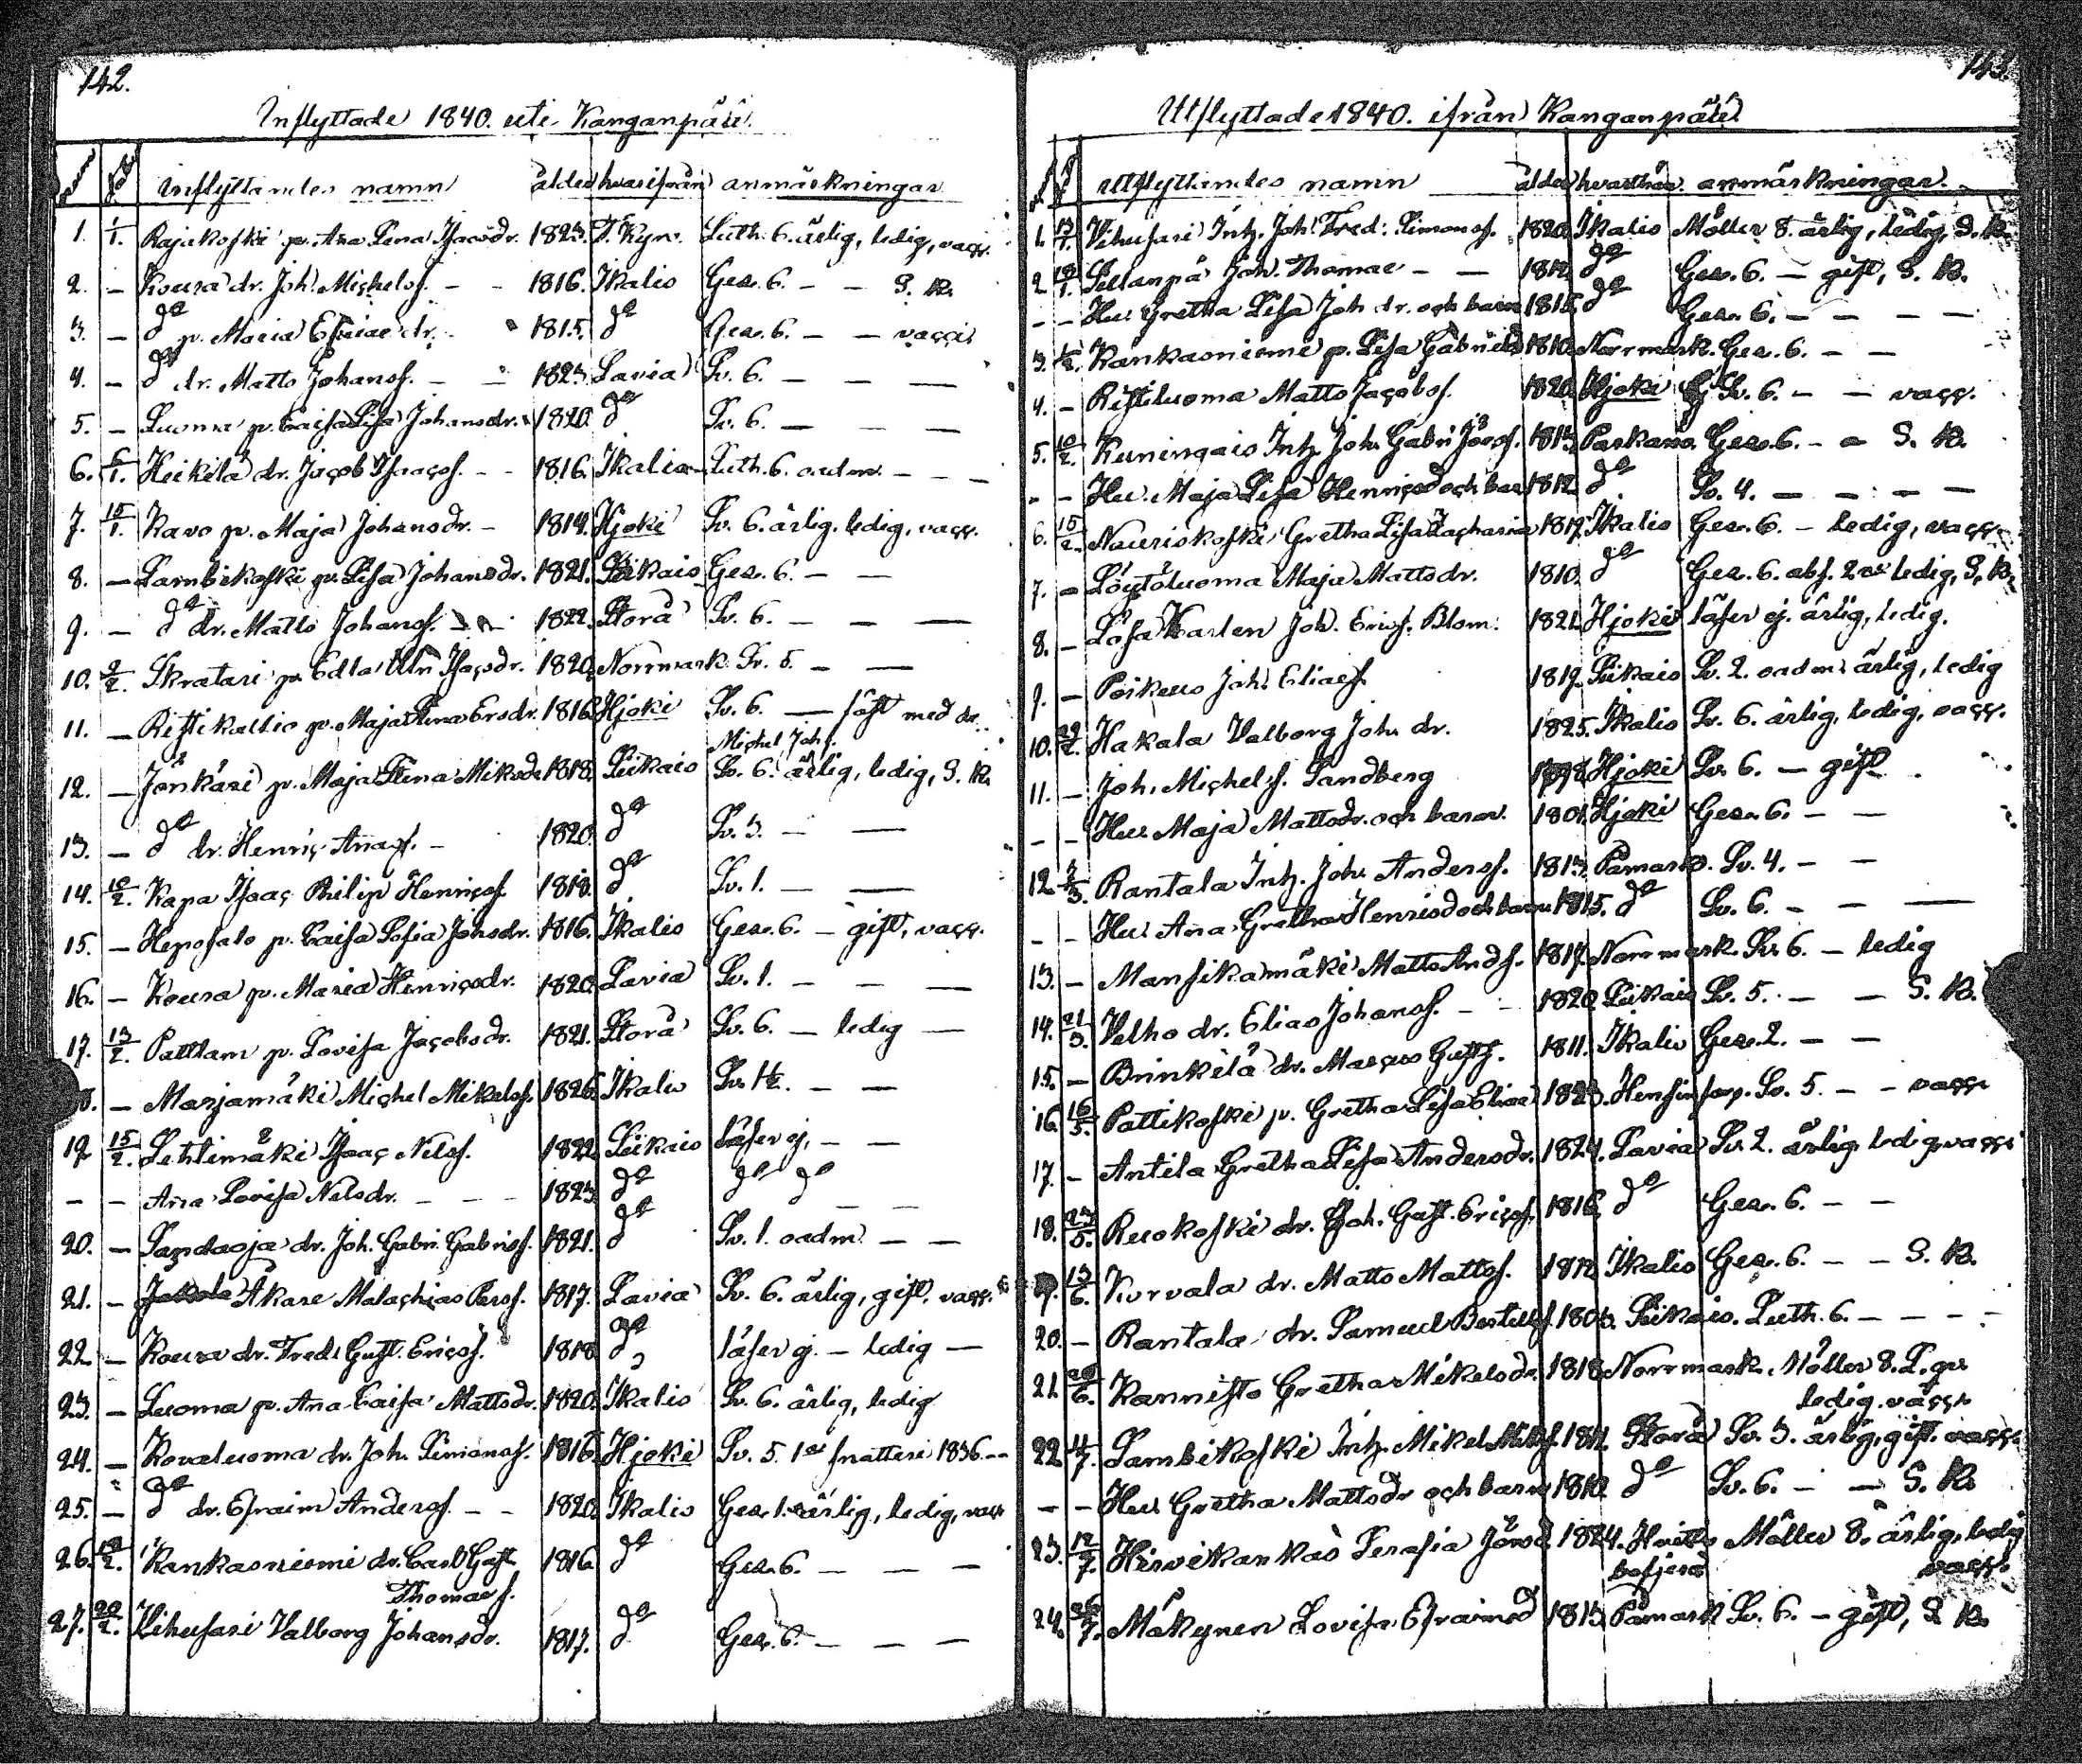 142.
Inflyttade 1840. uti Kanganpää.
inflyttandes namn ålder hvarifrån anmärkningar
1. 1/1. Rajakoski p. Ana Lena Isacsdr. 1823. T. Kyro. Luth. 6. ärlig, ledig, vacc.
2. — Koura dr. Joh. Michelss. - - 1816. Ikalis Ges. 6. - - S. K.
3. — do p. Maria Esaiae dr. 1815. do Ges. 6. - — vacci
4. — do dr. Matts Johanss. - - 1823. Lavia Sv. 6. — — —
5. — Luoma p. Caisa Lisa Johansdr. 1820. do Sv. 6. — — —
6. 6/1. Heikilä dr. Jacob Isaacss. - - 1816. Ikalis Luth. 6. oadm. - - -
7. 15/1. Kavo p. Maja Johansdr. - 1814. Hjoki Sv. 6. ärlig. ledig, vacc.
8. — Lambikoski p. Lisa Johansdr. 1821. Siikais Ges. 6. - —
9. — do dr. Matts Johanss. 1822. Storå Sv. 6. - — —
10. 2/2. Skratari p. Edla Ulr. Isacsdr. 1820. Norrmark. Sv. 5. - —
11. — Ristikallio p. Maja Lena Ersdr. 1816. Hjoki Sv. 6. — fäst med dr.
Michel Johs.
12. — Jönkäri p. Maja Stina Miksdr. 1818. Siikais Sv. 6. ärlig, ledig, S. K.
13. — do dr. Henric Anass. - 1820. do Sv. 3. - —
14. 10/2. Kapa Isaac Philip Henricss. 1818. do Sv. 1. — —
15. — Heposalo p. Caisa Sofia Johsdr. 1816. Ikalis Ges. 6. - gift, vacc.
16. — Koura p. Maria Henricsdr. 1820. Lavia Sv. 1. — — —
17. 13/2. Pattlam p. Lovisa Jacobsdr. 1821. Storå Sv. 6. — ledig —
8. — Marjamäki Michel Mikelss. 1826. Ikalis Sv. 1½. - —
19 15/2. Lehtimäki Isaac Nelss. 1822. Siikais läser ej, - —
- - Ana Lovisa Nelsdr. - - - 1823. do do do
20. — Sandaoja dr. Joh. Gabr. Gabrss. 1821. do Sv. 1. oadm. — —
21. — Åkare Malachias Perss. 1817. Lavia Sv. 6. ärlig, gift. vacc.
22. — Koura dr. Fredr. Gust. Ericss. 1818. do läser ej. - ledig —
23. — Luoma p. Ana Caisa Mattsdr. 1820. Ikalis Sv. 6. ärlig, ledig
24. — Kovaluoma dr. Joh. Simonss. 1816. Hjoki Sv. 5. 1sa snatteri 1836. --
25. — do dr. Efraim Anderss. - - 1820. Ikalis Ges. 1. ärlig, ledig, vacc
26. 19/2. Kankasniemi dr. Carl Gust. 1816. do Ges. 6. — — —
Thomass.
27. 20/2. Vihusari Valborg Johansdr. 1817. do Ges. 6. — — —
143.
Utflyttade 1840. ifrån Kanganpää
utflyttandes namn ålder hvarthän anmärkningar.
1. 13/1. Vihusari Inh. Joh. Fred. Simonss. 1820. Ikalis Möller 8. ärlig, ledig, S. K.
2 18/1. Sillanpä Joh. Thomae - — 1812. do Ges. 6. — gift, S. K.
- - Hu. Gretha Lisa Joh. dr. och barn 1815. do Ges. 6. — — — —
3. 1/2. Kankasniemi p. Lisa Gabriels 1810. Norrmark. Ges. 6. - —
4. — Ristiluoma Matts Jacobss. 1820. Hjoki Sv. 6. - — vacc.
5. 10/2. Kuningais Inh. Joh. Gabr. Jöoss. 1813. Parkano Ges. 6. - - S. K.
- - Hu. Maja Lisa Henricsd och barn 1812. do Sv. 4. — — — —
6. 15/2. Nauriskoski Gretha Lisa Zacharia 1817. Ikalis Ges. 6. - ledig, vacc.
7. — Löytöluoma Maja Mattsdr. 1810. do Ges. 6. abs. ledig, S. K.
8. — Lösa Karlen Joh. Erics. Blom: 1821. Hjoki läser ej. ärlig, ledig.
9. — Poikeus Joh. Eliaess. 1819. Siikais Sv. 2. oadm. ärlig, ledig
10. 29/2. Hakala Valborg Joh. dr. 1825. Ikalis Sv. 6. ärlig, ledig, vacc.
11. — Joh. Michelss. Sandberg Hjoki Sv. 6. — gift
- - Hu. Maja Mattsdr. och barn. 1801. Hjoki Ges. 6. — —
12. 2/3. Rantala Inh. Joh. Anderss. 1813. Påmark. Sv. 4. - —
- - Hu. Ana Gretha Henricsd och barn 1815. do Sv. 6. — — —
13. — Mansikamäki Matts Ands. 1817. Norrmark. Sv. 6. — ledig
14. 21/3. Velho dr. Elias Johanss. - - 1820. Siikais Sv. 5. - — S. K.
15. — Brinkilä dr. Marcus Gusts. 1811. Ikalis Ges. 2. — —
16. 16/5. Pattikoski p. Gretha Lisa Eliae 1823. Hensinfors. Sv. 5. - - vacc
17. — Antila Gretha Lisa Andersdr. 1824. Lavia Sv. 2. ärlig, ledig, vacc
18. 23/5. Ruokoski dr. Joh. Gust. Ericss. 1816. do Ges. 6. - —
9. 13/6. Kurvala dr. Matts Mattss. 1812. Ikalis Ges. 6. — - S. K.
20. — Rantala dr. Samuel Bertells. 1803. Siikais. Luth. 6. - - - -
21. 26/6. Kannisto Gretha Mikelsdr. 1818. Norrmark. Möller 8.
ledig. vacc.
22. 11/7. Lambikoski Inh. Mikel Mikels. 1811. Storå Sv. 3. ärlig, gift. vacc.
- - Hu. Gretha Mattsdr och barn 1810. do Sv. 6. - — S. K.
23. 12/7. Hirvikankas Serafia Jönsd. 1824. Hvittis Möller 8. ärlig, ledig
bofjerd vacc.
24. 26/7. Mäkynen Lovisa Efraimsd 1813. Påmark Sv. 6. - gift, S. K.